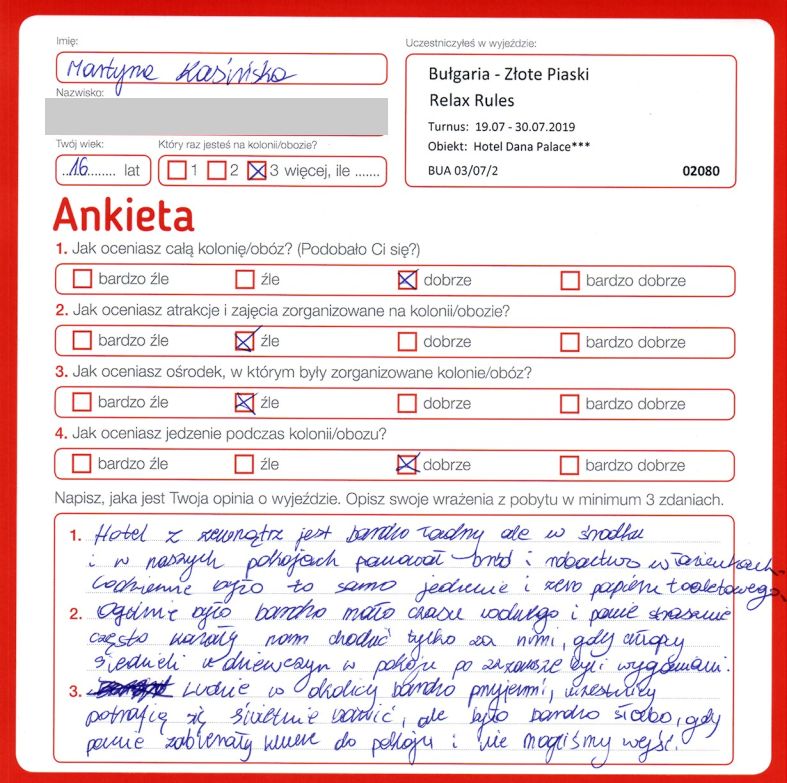 Imię:
Martyna Kasińska
Nazwisko:
Twój wiek:
..16........ lat
Który raz jesteś na kolonii/obozie?
1 2 3 więcej, ile .......
Uczestniczyłeś w wyjeździe:
Bułgaria - Złote Piaski
Relax Rules
Turnus: 19.07 - 30.07.2019
Obiekt: Hotel Dana Palace***
BUA 03/07/2 02080
Ankieta
1. Jak oceniasz całą kolonię/obóz? (Podobało Ci się?)
bardzo źle źle dobrze bardzo dobrze
2. Jak oceniasz atrakcje i zajęcia zorganizowane na kolonii/obozie?
bardzo źle źle dobrze bardzo dobrze
3. Jak oceniasz ośrodek, w którym były zorganizowane kolonie/obóz?
bardzo źle źle dobrze bardzo dobrze
4. Jak oceniasz jedzenie podczas kolonii/obozu?
bardzo źle źle dobrze bardzo dobrze
Napisz, jaka jest Twoja opinia o wyjeździe. Opisz swoje wrażenia z pobytu w minimum 3 zdaniach.
1. Hotel z zewnątrz jest bardzo ładny ale w środku
i w naszych pokojach panował brud i robactwo w łazienkach
codziennie było to samo jedzenie i zero papieru toaletowego.
2. Ogólnie było bardzo mało czasu wolnego i panie strasznie
często kazały nam chodzić tylko za nimi, gdy chłopcy
siedzieli u dziewczyn w pokoju po zawsze byli wyganiani.
3. Ludzie w okolicy bardzo przyjemni, uczestnicy
potrafią się świetnie bawić, ale było bardzo słabo, gdy
panie zabierały klucze do pokoju i nie mogliśmy wejść.